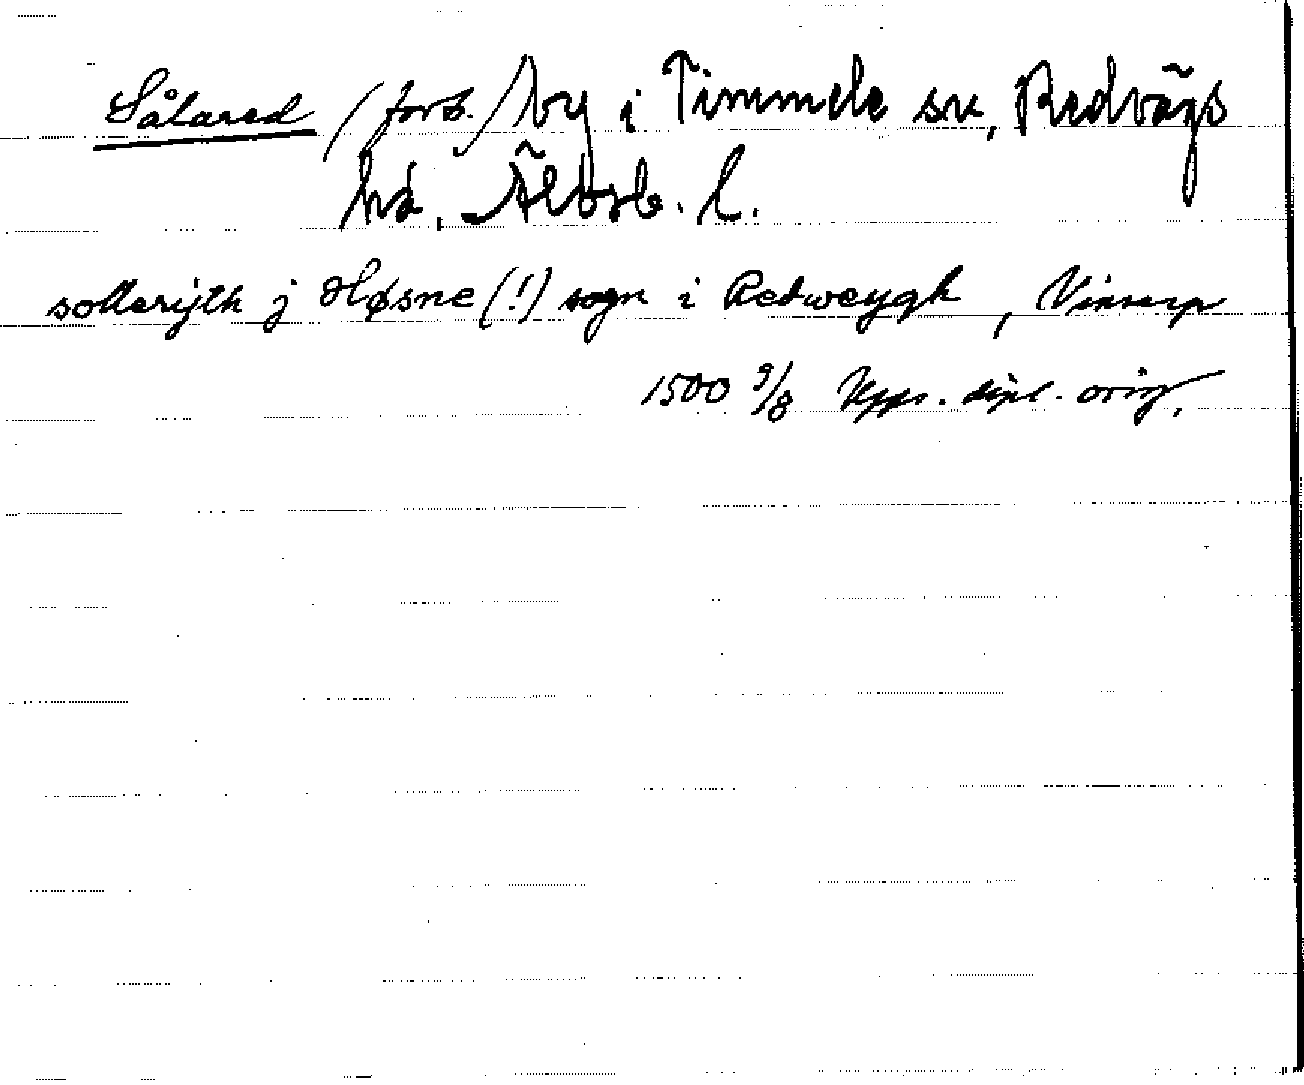 Sålared (förb.) by i Timmele sn, Redvägs
hd, Älvsb. l.
sollerijth j Høsne (!) sogn i Redweygh, Vinsarp
1500 9/8 Upps. dipl. orig.